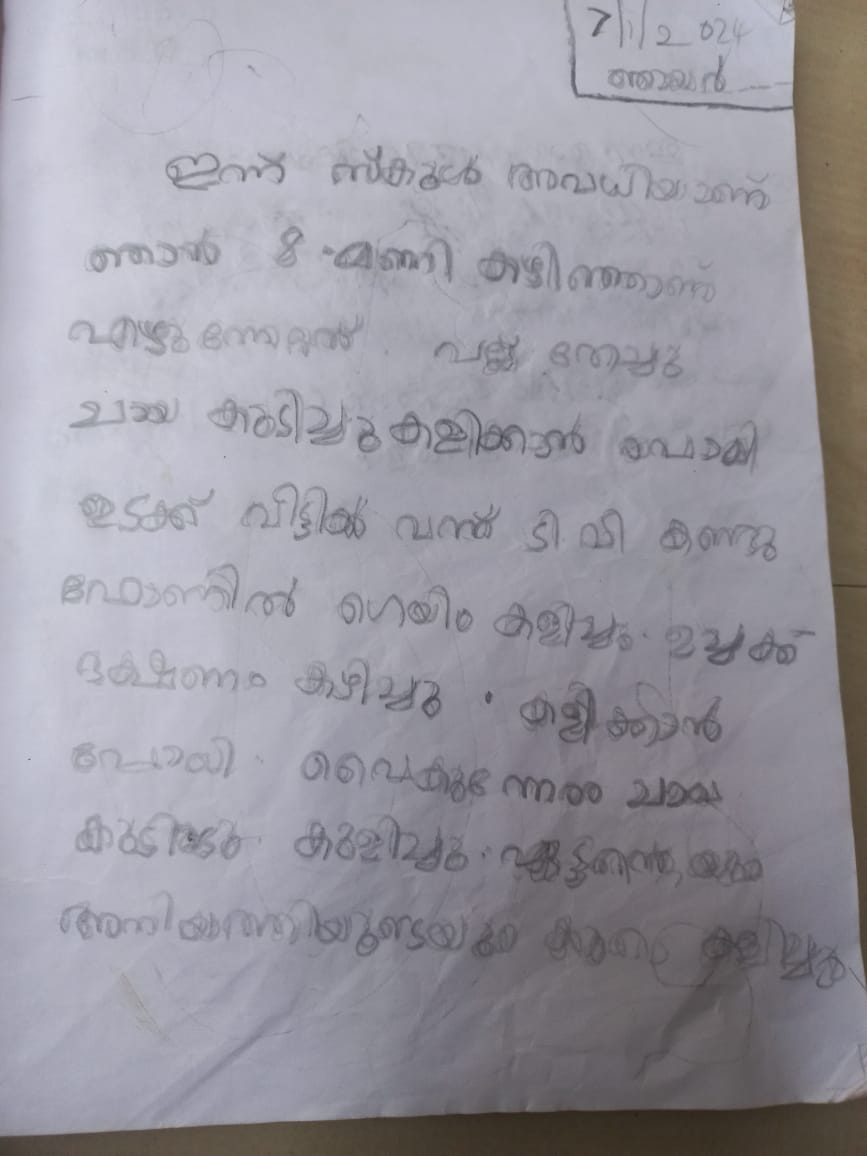 7/1/2024
ഞായർ
ഇന്ന് സ്കൂൾ അവധിയാണ്
ഞാൻ 8 മണി കഴിഞ്ഞാണ്
എഴുന്നേറ്റത് പല്ല് തേച്ചു
ചായ കുടിച്ചു കളിക്കാൻ പോയി
ഇടക്ക് വീട്ടിൽ വന്ന് ടി.വി കണ്ടു
ഫോണിൽ ഗെയിം കളിച്ചു. ഉച്ചക്ക്
ഭക്ഷണം കഴിച്ചു. കളിക്കാൻ
പോയി. വൈകുന്നേരം ചായ
കുടിച്ചു. കുളിച്ചു.
അനിയത്തിയുടെയും കൂടെ കളിച്ചു